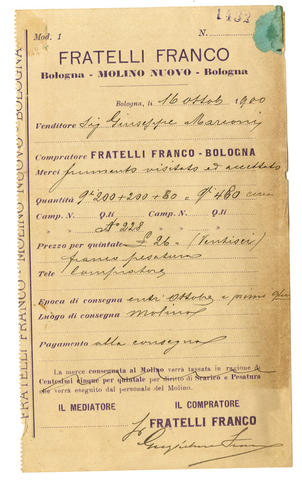 1432
Mod. 1 N.
FRATELLI FRANCO
Bologna - MOLINO NUOVO - Bologna
Bologna, li 16 Ottob 1900
Venditore Sig Giuseppe Marconi
Compratore FRATELLI FRANCO - BOLOGNA
Merci frumento visitato ed accettato
Quantità Qli 200+200+80 = Qli 480 circa
Camp. N. Q.li Camp. N. Q.li
" " N° 228 " "
Prezzo per quintale £ 26 = (Ventisei)
franco pesatura
Tele compratore
Epoca di consegna entro Ottobre e
Luogo di consegna Molino
Pagamento alla consegna
La merce consegnata al Molino verrà tassata in ragione di
Centesimi cinque per quintale per diritto di Scarico e Pesatura
che verrà eseguito dal personale del Molino.
IL MEDIATORE IL COMPRATORE
FRATELLI FRANCO
FRATELLI FRANCO - MOLINO NUOVO - BOLOGNA